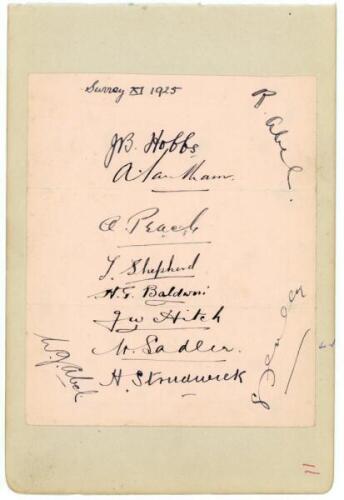 Surrey XI 1925
R. Abel.
J B. Hobbs
A. Peach
T. Shepherd
H. G. Baldwin
J W Hitch
W. Sadler.
W. J. Abel
H. Strudwick